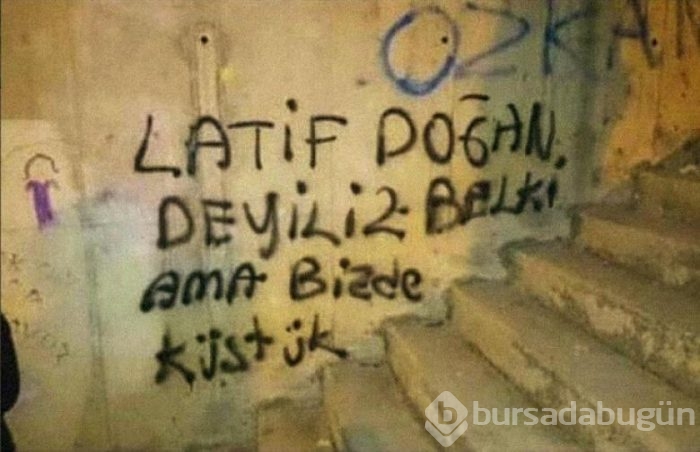 OZKAN
LATİF DOĞAN,
DEYİLİZ BELKİ
AMA Bizde
KÜStük
b bursadabugün